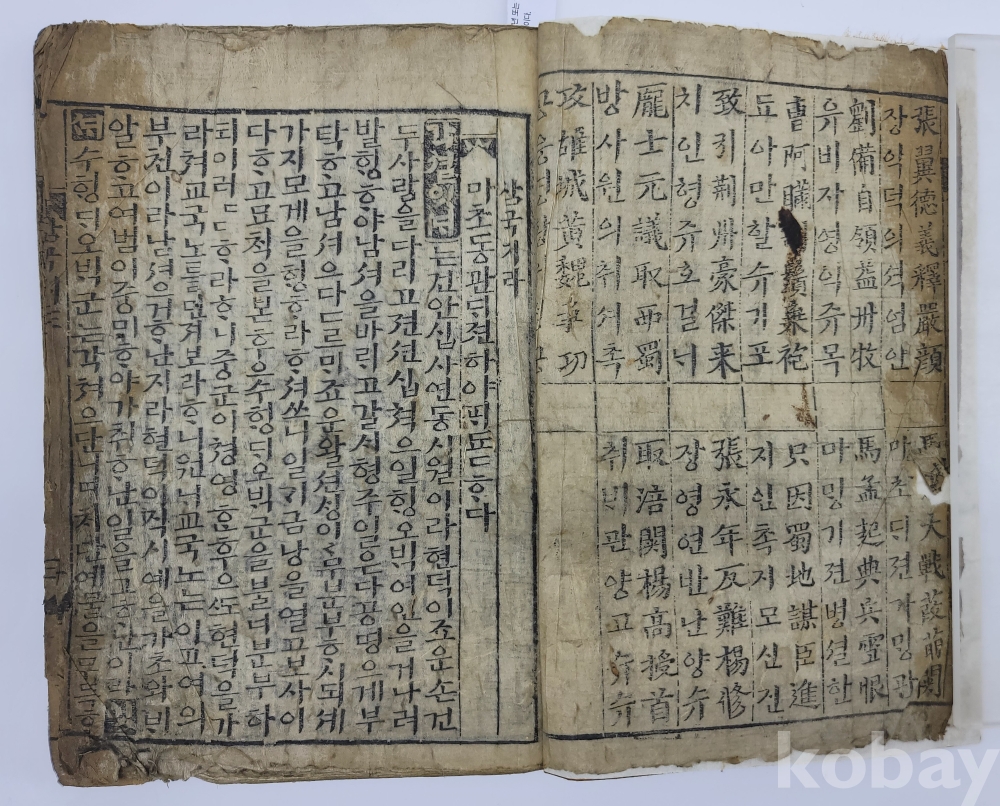 張翼德義釋嚴顔
장익덕의셕엄안
劉備自領益州牧
유비자영익쥬목
曹阿瞞 鬚棄袍
됴아만할슈기포
致引荊州豪傑来
치인형쥬호걸ᄂᆡ
龐士元議取西蜀
방사원의취셔촉
攻雄城黃魏爭功
馬 大戰葭萌關
마초ᄃᆡ젼가밍관
馬孟起興兵雪恨
마밍기젼병셜한
只因蜀地謀臣進
지인촉지모신진
張永年反難楊修
장영연반난양슈
取涪關楊高授首
취비관양고슈슈
삼국지라
마초동관ᄃᆡ젼하야
는건안십사연동시월이라현덕이죠운손건
두사람을다리고젼션십쳑으일힝오빅여인을거나려
발힝ᄒᆞ야남셔을바ᄅᆡ고갈ᄉᆡ형주일은다공명으게부
탁ᄒᆞ고남셔으다드르ᄆᆡ죠운왈션ᄉᆡᆼ이 분부ᄒᆞ시되세
가지모게을힝ᄒᆞ라ᄒᆞ셔쓰니일기금낭을열고보사이
다ᄒᆞ고묘ᄎᆡᆨ을보ᄒᆞᆫ후슈힝ᄃᆡ오빅군을불너분부하
되이러ᄃᆞᆺᄒᆞ라ᄒᆞ니중군이쳥영ᄒᆞᆫ후으ᄯᅩ현덕을가
라쳐교국노를먼져보라ᄒᆞ니원ᄂᆡ교국노는이교여의
부친이라남셔으거ᄒᆞᄂᆞᆫ지라현덕이직시예을가초와빈
알ᄒᆞ고여범이중ᄆᆡᄒᆞ야가취ᄒᆞᄂᆞᆫ일을고ᄒᆞ
슈힝ᄃᆡ오빅군는각쳐으단니며ᄎᆡ단예물을
kobay